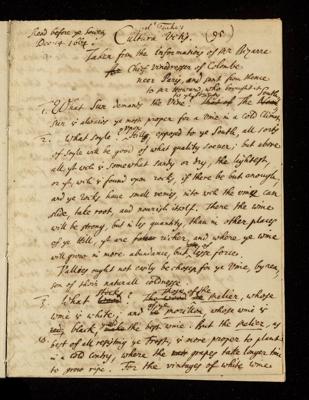 Read before ye Society
Dec: 4 166
(95)
Cultura Vitis.
Taken from the Informations of Mr
Chief Vinedresser of Colombe
near Paris, and sent from thence
to Mr Howard, who brought it to
1. What Sun demands the Vine? that of the South
Sun is alwaies ye most proper for a vine in a Cold Climat,
2. What Soyle? Upon Hills, exposed to ye South, all sorts
of soyle will be good of what quality soever; but above
all, yt wch is somewhat sandy or dry, the lightest,
or yt, wch is found upon rocks, if there be but enough,
and ye Rocks have small veines, into wch the vines can
slide, take root, and nourish itself. There the wine
will be strong, but in less quantity, than in other places
of ye Hill, yt are richer, and where ye wine
will grow in more abundance, but of lesse force.
Vallies ought not easily be chosen for ye Vine, by rea-
son of their naturall coldnesse
3. What those of the melier, whose
wine is white; and ye morillon, whose wine is
black, the best wine. But the melier, as
best of all resisting ye Frost, is more proper to plant
in a cold Contry, where the grapes take longer time
to grow ripe. For the vintages of white wine